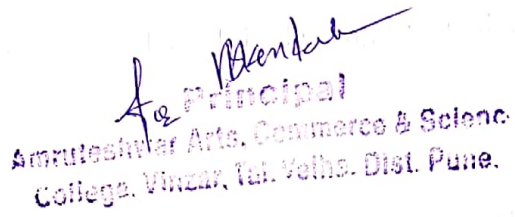 Principal
Amruteshwar Arts, Commerce & Scienc
College, Vinzar, Tal. Velhe. Dist. Pune.